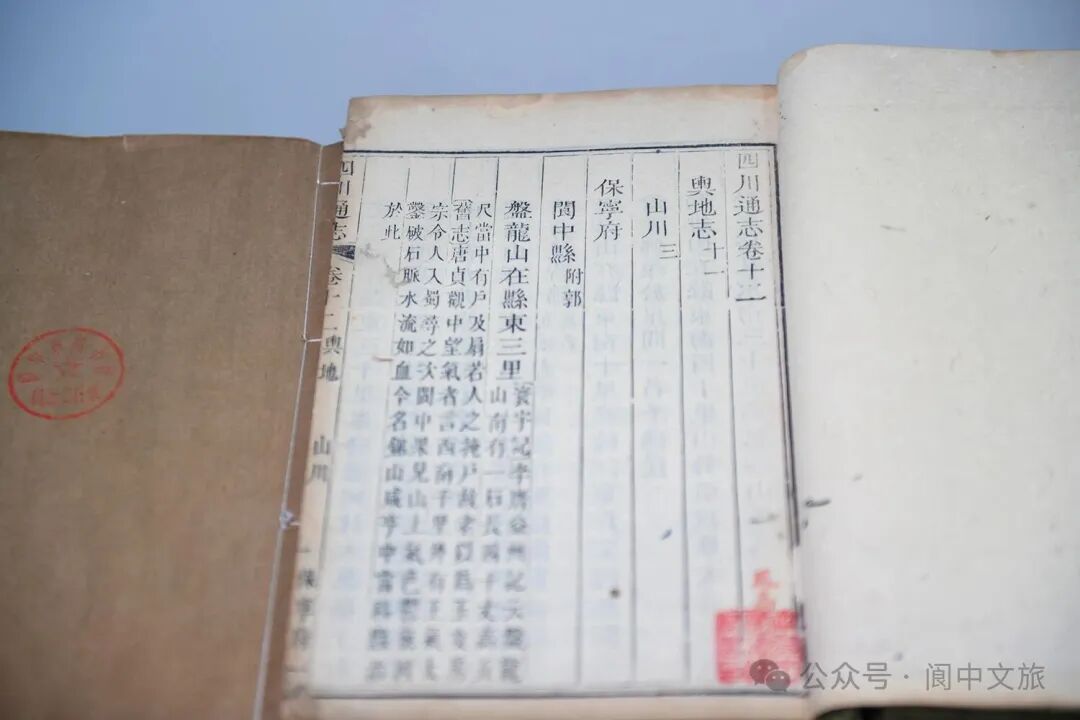 四川通志卷十二
輿地志十一
山川三
保寧府
閬中縣附郭
盤龍山在縣東三里寰宇記李膺益州記云盤龍
山南有一石長四十丈高五
尺當中有戶及扇若人之掩戶故老以爲玉女房
舊志唐貞觀中望氣者言西南千里外有王氣太
宗令人入蜀尋之次閬中果見山上氣色鬱
鑿破石脈水流如血今名鋸山咸亨中
於此
四川通志 卷十二輿地 山川 保寧府一
公众号·阆中文旅